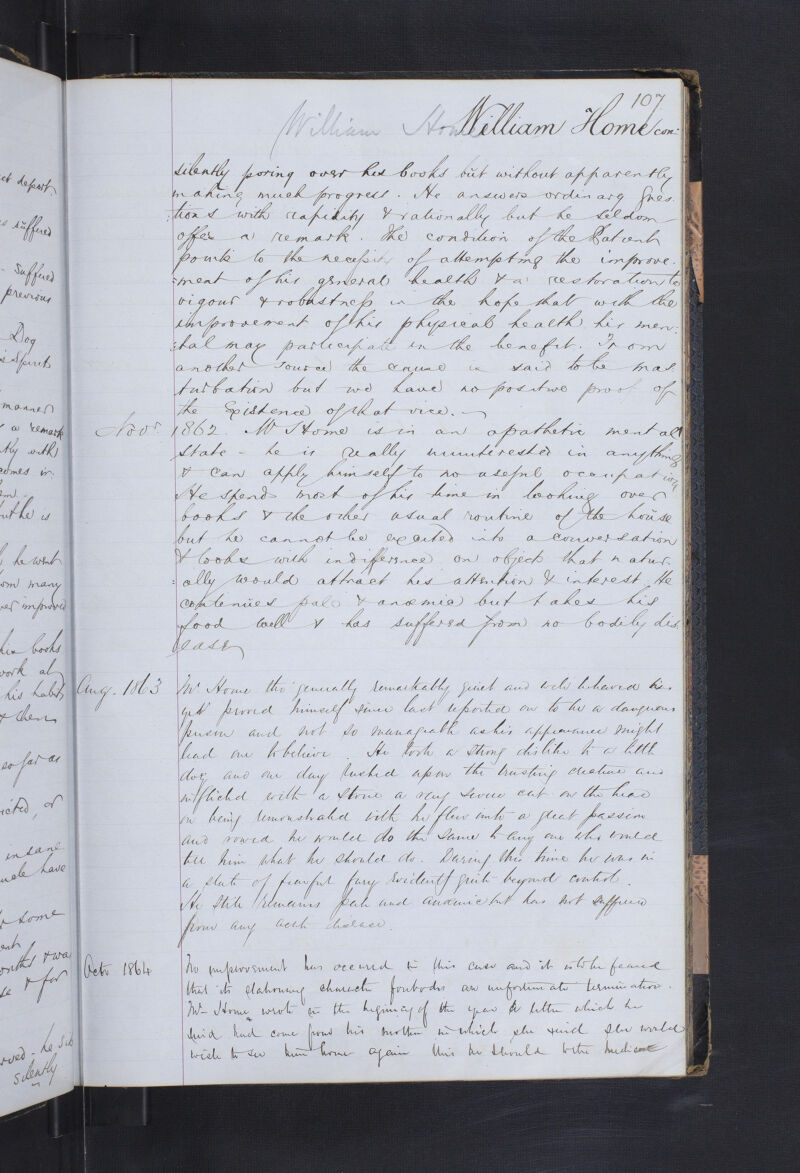 107
William Home William Home con:
silently poring over his books but without apparently
making much progress. He answers ordinary Ques
:tions with rapidity & rationally but he seldom
offer a remark. The condition of the Patient
points to the necessity of attempting the improve.
:ment of his general health & a restoration to
vigour & robustness in the hope that with the
improvement of his physical health his men:
:tal may participate in the benefit. From
another source the cause is said to be mas
turbation but we have no positive proof of
the Existence of that vice.
Novr 1862. Mr Home is in an apathetic mental
state - he is really uninterested in anything
& can apply himself to no useful occupation
He spends most of his time in looking over
books & the other usual routine of the house
but he cannot be excited into a conversation
& looks with indifference on object that natur
:ally would attract his attention & interest He
contenues pale & anæmic but takes his
food well & has suffered from no bodily dis
ease
Aug. 1863 Mr Home tho' generally remarkably quiet and well behaved has
yet proved himself since last reported on to be a dangerous
person and not so manageable as his appearance might
lead one to believe. He took a strong dislike to a little
dog and one day rushed upon the trusting creature and
inflicted with a stone a very severe cut on the head
on being remonstrated with he flew into a great passion
and vowed he would do the same to any one who would
tell him what he should do. During this time he was in
a state of fearful fury evidently quite beyond control.
He still remains pale and anæmic but has not suffered
from any acute disease.
Octr 1864 No improvement has occured in this case and it is to be feared
that its stationary character forbodes an unfortunate termination.
Mr Home wrote in the beginning of the year a letter which he
said had come from his mother in which she said she would
wish to see him home again this he should to the medical
ct depart.
s suffered
- Suffered
previous
Dog
manner
a remark
comes in
but he is
he went
from many
improved
his books
work at
his habits
& then
so far as
or
insane
have
some
& was
& for
- he sits
silently